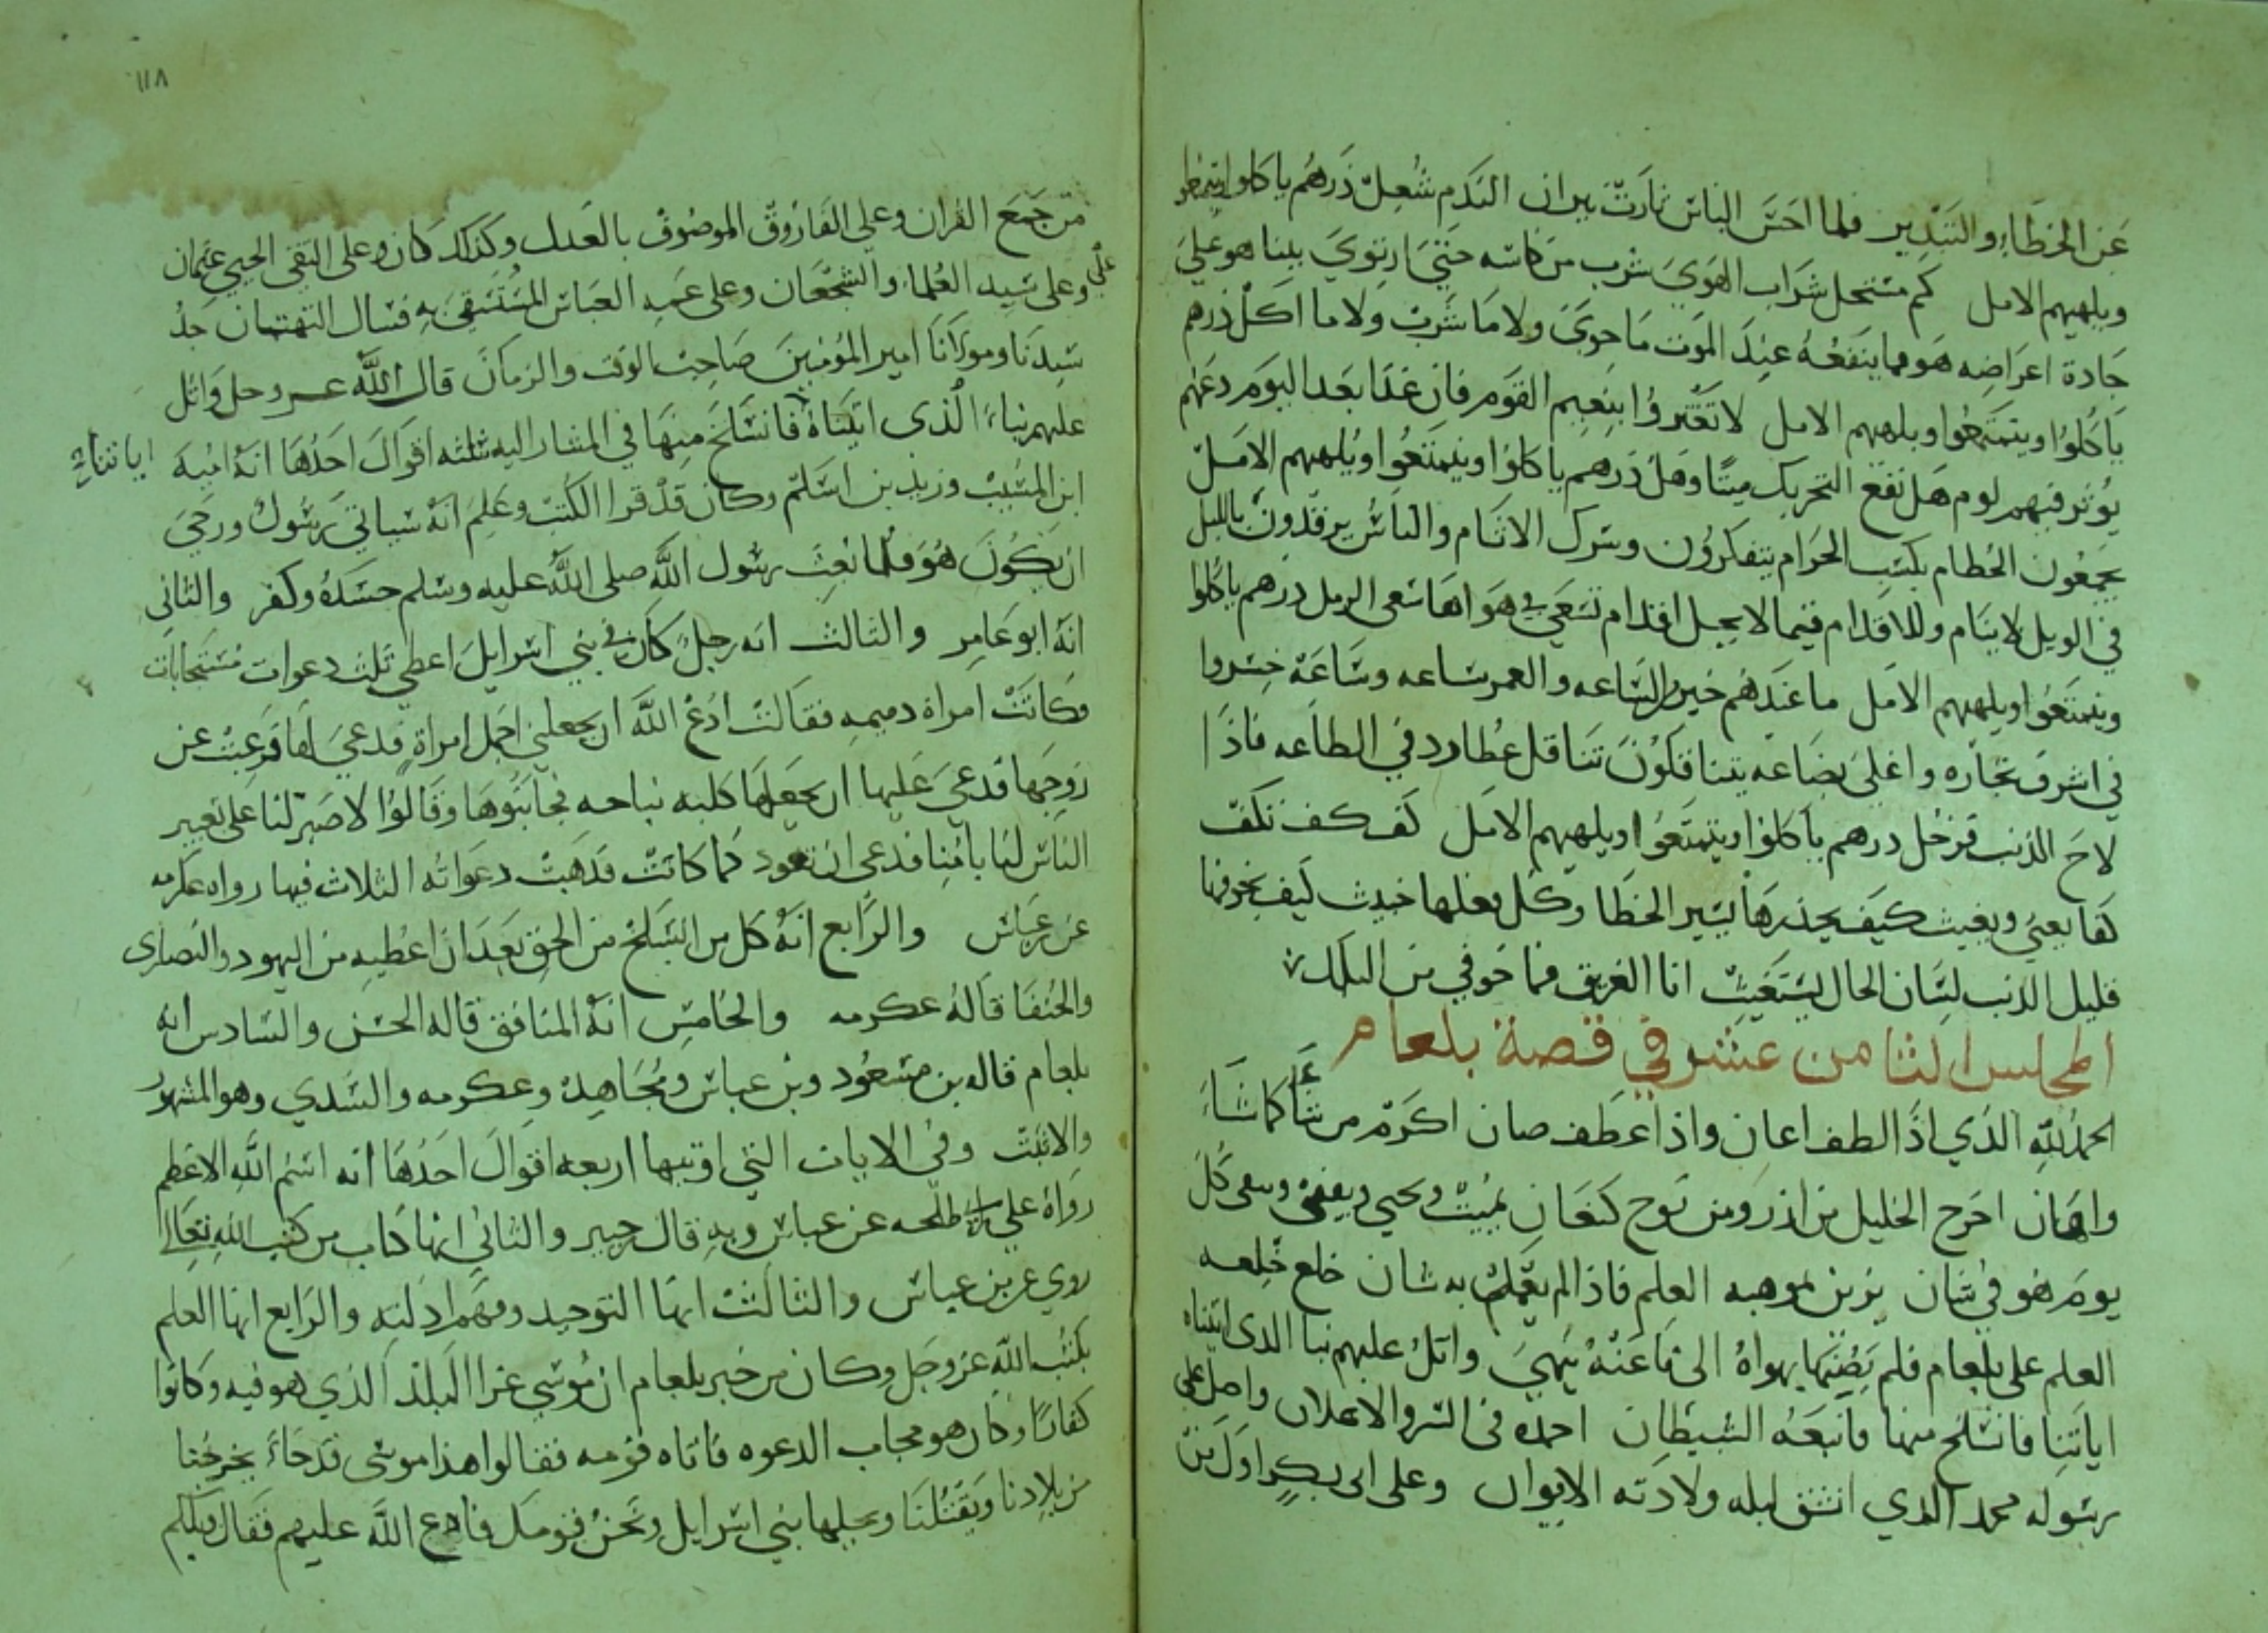 عن الخطاء والتبذير فلما احس الباس ثارت نيران الندم شعل ذرهم ياكلوا ويتمتعوا
ويلههم الامل كم مستحل شراب الهوى شرب من كاسه حتى ارتوى بينا هو على
جادة اعراضه هوى ما ينفعه عند الموت ما حوى ولا ما شرب ولا ما اكل ذرهم
ياكلوا ويتمتعوا ويلههم الامل لا تغتروا بنعيم القوم فان غدا بعد اليوم دعهم
يوثر فيهم لوم هل نفع التحريك ميتا وهل ذرهم ياكلوا ويتمتعوا ويلههم الامل
يجمعون الحطام بكسب الحرام يتفكرون وشرك الاثام والناس يرقدون بالليل
في الويل لا ينام وللاقدام فيما لا يحل اقدام تسعى في هواها سعى الرمل ذرهم ياكلوا
ويتمتعوا ويلههم الامل ما عندهم خير الساعه والعمر ساعه وساعة خسروا
في اشرف تجاره واغلى بضاعه بينا فتكون تثاقل عطارد في الطاعه فاذا
لاح الذنب فزحل ذرهم ياكلوا ويتمتعوا ويلههم الامل كف كف تكف
كفا يعني ويغيث كيف يحذرها يسير الخطا وكل فعلها خبيث كيف يخوفها
قليل الذنب لسان الحال يستغيث انا الغريق فما خوفي من البلل
المجلس الثامن عشر في قصة بلعام
الحمد لله الذي اذا لطف اعان واذا عطف صان اكرم من شاء كما شاء
واهان اخرج الخليل من اذر ومن نوح كنعان يميت ويحيي ويفني ويبقى كل
يوم هو في شان يزين بموهبه العلم فاذا لم يعمل به شان خلع خلعه
العلم على بلعام فلم يصنها بهواه الى ما عنه ينهي واتل عليهم نبا الذي اتيناه
اياتنا فانسلخ منها فاتبعه الشيطان احمده في السر والاعلان واصلى على
رسوله محمد الذي انشق ليله ولادته الايوان وعلى ابي بكر اول من
١١٨
من جمع القران وعلى الفاروق الموصوف بالعدل وكذلك كان وعلى التقي الحيي عثمان
وعلى علي سيد العلماء والشجعان وعلى عمه العباس المستسقى به فسال التهتان جد
سيدنا ومولانا امير المؤمنين صاحب الوقت والزمان قال الله عز وجل واتل
عليهم نباء الذي اتيناه اياتناء فانسلخ منها في المشار اليه ثلثه اقوال احدها انه اميه
ابن المسيب وزيد بن اسلم وكان قد قرا الكتب وعلم انه سياتي رسول ورجى
ان يكون هو فلما بعث رسول الله صلى الله عليه وسلم حسده وكفر والثاني
انه ابو عامر والثالث انه رجل كان في بني اسرايل اعطي ثلث دعوات مستجابات
وكانت امراة دميمه فقالت ادع الله ان يجعلني اجمل امراة فدعى لها فرغبت عن
زوجها فدعى عليها ان يجعلها كلبه نباحه فجا بنوها وقالوا لا صبر لنا على تعيير
الناس لنا بامنا فدعى ان تعود كما كانت فذهبت دعواته الثلاث فيها رواه عكرمه
عن بن عباس والرابع انه كل من انسلخ من الحق بعد ان اعطيه من اليهود والنصارى
والحنفا قاله عكرمه والخامس انه المنافق قاله الحسن والسادس انه
بلعام قاله بن مسعود وبن عباس ومجاهد وعكرمه والسدي وهو المشهور
والاثبت وفي الايات التي اوتيها اربعه اقوال احدها انه اسم الله الاعظم
رواه علي بن طلحه عن عباس وبه قال جبير والثاني انها كتاب من كتب الله تعالى
روي عن بن عباس والثالث انها التوحيد وفهم ادلته والرابع انها العلم
بكتب الله عز وجل وكان من خبر بلعام ان موسى غزا البلد الذي هو فيه وكانوا
كفارا وكان هو مجاب الدعوه فاتاه قومه فقالوا هذا موسى قد جاء يخرجنا
من بلادنا ويقتلنا ويحلها بني اسرايل ونحن قومك فادع الله عليهم فقال ويلكم